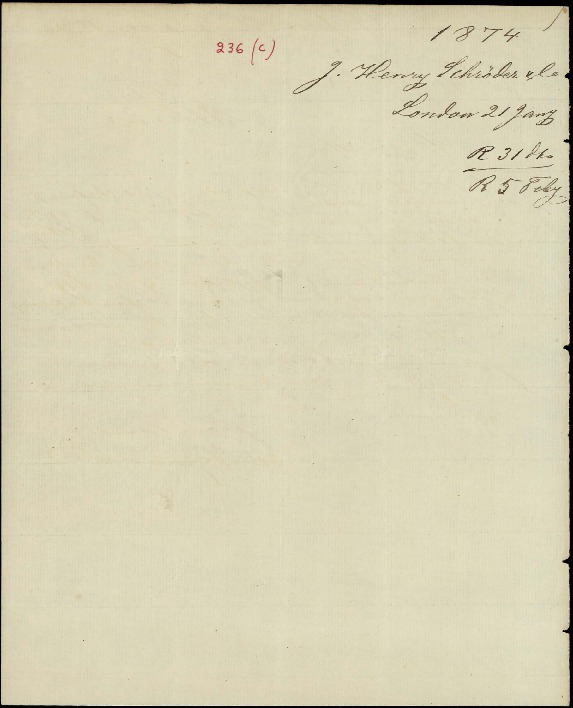 1874
236 (c)
J. Henry Schröder & Co
London 21 Jany
R 31 do
R 5 Feby